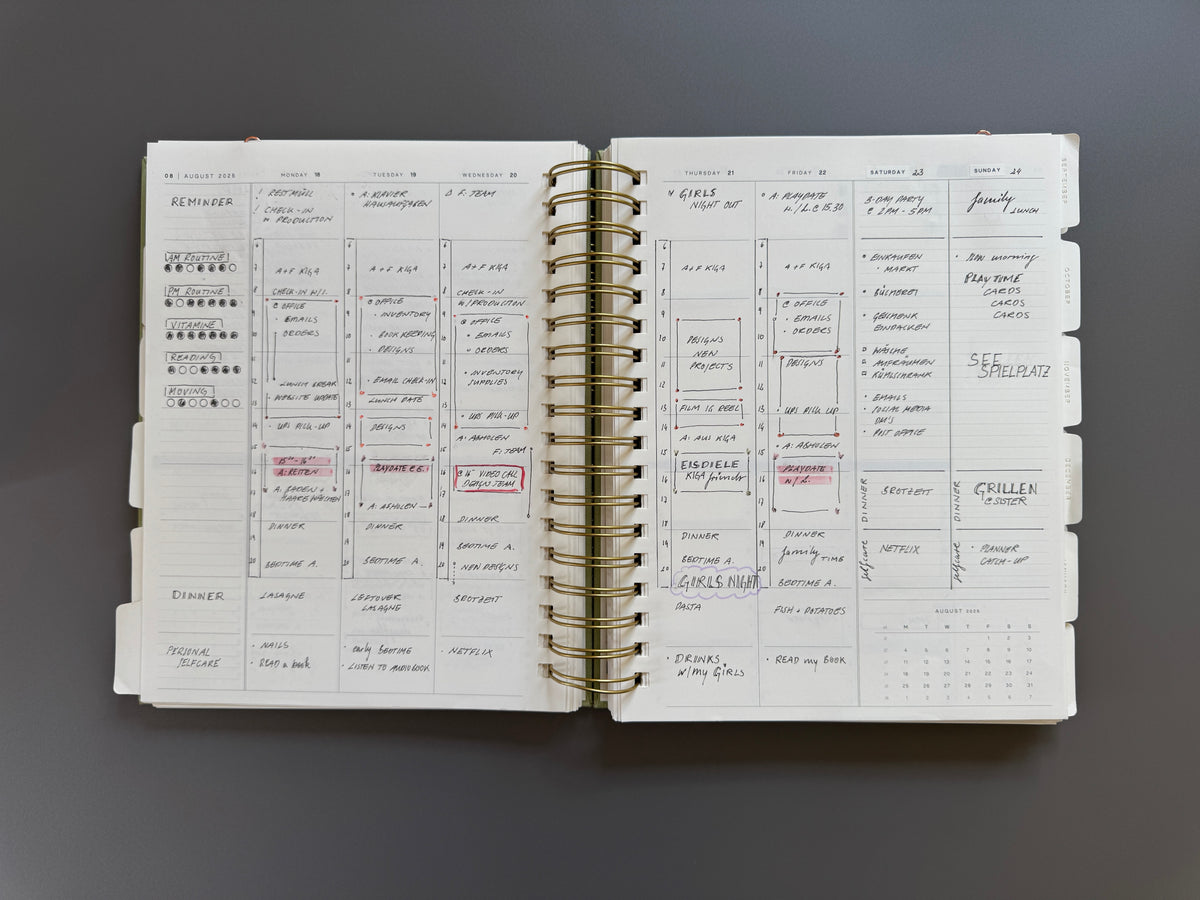 08 | AUGUST 2025
REMINDER
AM ROUTINE
PM ROUTINE
VITAMINE
READING
MOVING
DINNER
PERSONAL
SELFCARE
MONDAY 18
! RESTMÜLL
! CHECK-IN
PRODUCTION
6
7
A+F KIGA
8
CHECK-IN
@ OFFICE
9
• EMAILS
10
ORDERS
11
12
LUNCH BREAK
13
• WEBSITE UPDATE
14
• UPS PICK-UP
15
16
A: REITEN
17
• A: BADEN +
HAARE WASCHEN
18
DINNER
19
20
BEDTIME A.
LASAGNE
• NAILS
• READ a book
TUESDAY 19
A: KLAVIER
HAUSAUFGABEN
6
7
A+F KIGA
8
@ OFFICE
9
• INVENTORY
10
• BOOKKEEPING
11
• DESIGNS
12
• EMAIL CHECK-IN
13
LUNCH DATE
14
DESIGNS
15
16
PLAYDATE @ E.
17
• A: ABHOLEN
18
DINNER
19
20
BEDTIME A.
LEFTOVER
LASAGNE
• early BEDTIME
• LISTEN TO AUDIOBOOK
WEDNESDAY 20
F: TEAM
6
7
A+F KIGA
8
CHECK-IN
W/PRODUCTION
9
@ OFFICE
10
• EMAILS
• ORDERS
11
12
• INVENTORY
SUPPLIES
13
14
• UPS PICK-UP
A: ABHOLEN
15
F: TEAM
16
VIDEO CALL
DESIGN TEAM
17
18
DINNER
19
BEDTIME A.
20
NEW DESIGNS
BROTZEIT
• NETFLIX
THURSDAY 21
GIRLS
NIGHT OUT
6
7
A+F KIGA
8
9
10
DESIGNS
11
NEW
PROJECTS
12
13
FILM IG REEL
14
A: AUS KIGA
15
16
EISDIELE
KIGA friends
17
18
DINNER
19
BEDTIME A.
20
GIRLS NIGHT
PASTA
• DRINKS
W/my GIRLS
FRIDAY 22
A: PLAYDATE
15.30
6
7
A+F KIGA
8
@ OFFICE
9
• EMAILS
10
• ORDERS
11
DESIGNS
12
13
• UPS PICK-UP
14
15
• A: ABHOLEN
16
PLAYDATE
W/ L.
17
18
DINNER
19
family TIME
20
BEDTIME A.
FISH + POTATOES
• READ my BOOK
SATURDAY 23
B-DAY PARTY
@ 2PM - 5PM
• EINKAUFEN
• MARKT
• BÜCHEREI
• GESCHENK
EINPACKEN
WÄSCHE
AUFRÄUMEN
KÜHLSCHRANK
• EMAILS
• SOCIAL MEDIA
DM'S
• POST OFFICE
DINNER
BROTZEIT
selfcare
NETFLIX
SUNDAY 24
family
LUNCH
• slow morning
PLAYTIME
CARDS
CARDS
CARDS
SEE
SPIELPLATZ
DINNER
GRILLEN
@ SISTER
selfcare
• PLANNER
CATCH-UP
AUGUST 2025
M T W T F S S
1 2 3
4 5 6 7 8 9 10
11 12 13 14 15 16 17
18 19 20 21 22 23 24
25 26 27 28 29 30 31
1 2 3 4 5 6 7
SEPTEMBER
OCTOBER
NOVEMBER
DECEMBER